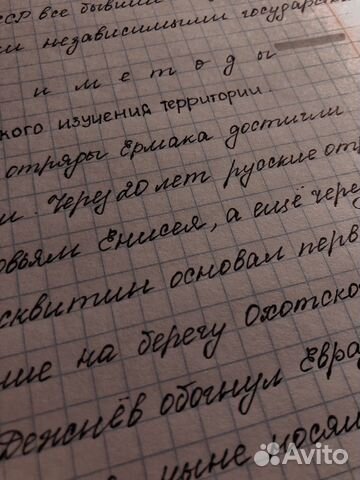 ССР все бывши
ми независимыми государств
и методы
кого изучения территории.
отряды Ермака достигли
и. Через 20 лет русские отр
овьям Енисея, а ещё чере
сквитин основал перв
ие на берегу Охотско
Дежнёв обогнул Евра
ныне носи
Avito